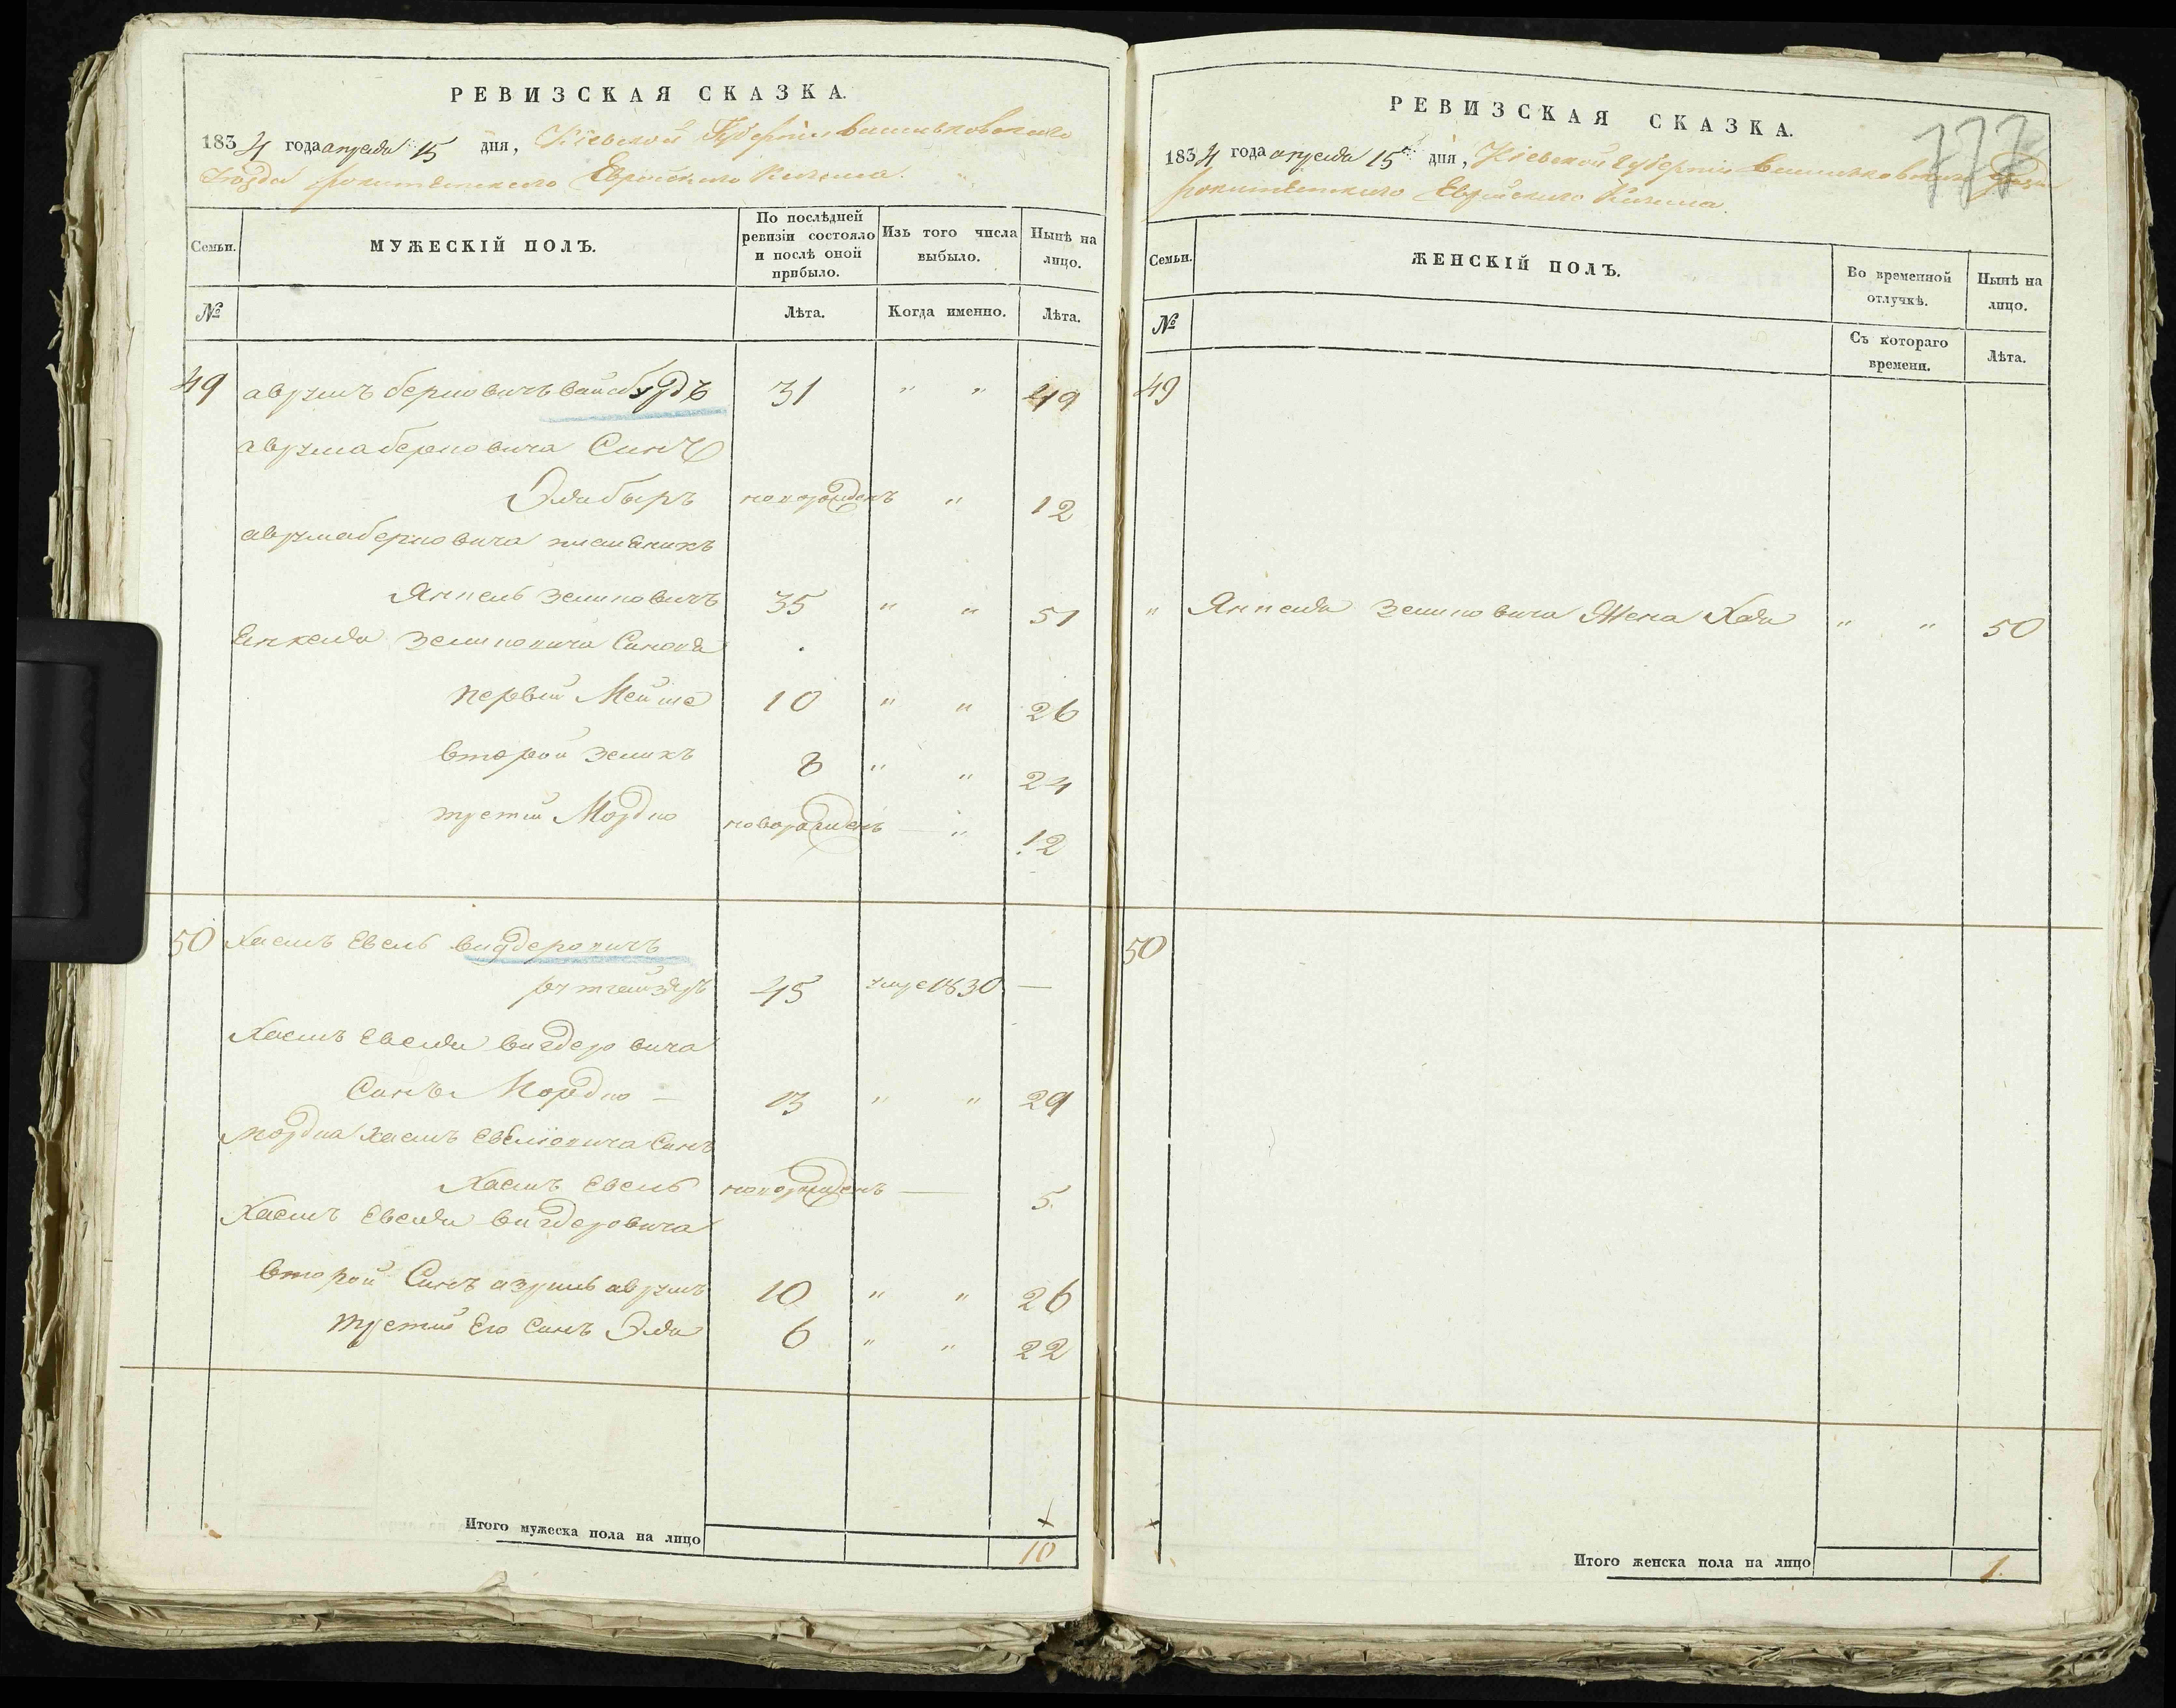 РЕВИЗСКАЯ СКАЗКА.
1834 года апреля 15 дня, Кіевской Губерніи Васильковскаго
уезда рокитянского Еврейского Кагала.
Семьи.
МУЖЕСКІЙ ПОЛЪ.
По послѣдней ревизіи состояло и послѣ оной прибыло.
Изъ того числа выбыло.
Нынѣ на лицо.
№
Лѣта.
Когда именно.
Лѣта.
49 аврумъ берковичъ 31 " " 49
аврума берковича Синъ
Эля быръ новорожденъ " 12
аврума берковича племеникъ
Янкель Зеликовичъ 35 " " 51
Енкеля Зеликовича Синовя
первый Мейше 10 " " 26
второй Зеликъ 8 " " 24
третій Мордко новорожденъ — " 12
50 Хаемъ Евель вигдеровичъ
45 умре 1830 —
Хаемъ Евеля вигдеровича
Синъ Мордко — 13 " " 29
Мордка Хаемъ Евелиовича Синъ
Хаемъ Евель новорожденъ — 5.
Хаемъ Евеля вигдеровича
второй Синъ азриль аврумъ 10 " " 26
третій Его Синъ Эля 6 " " 22
Итого мужеска пола на лицо 10
РЕВИЗСКАЯ СКАЗКА.
777
1834 года апреля 15 дня, Кіевской Губерніи Васильковского уезда
рокитянского Еврейского Кагала.
Семьи.
ЖЕНСКІЙ ПОЛЪ.
Во временной отлучкѣ.
Нынѣ на лицо.
№
Съ котораго времени.
Лѣта.
49
" Янкеля Зеликовича Жена Хая " " 50
50
Итого женска пола на лицо 1.